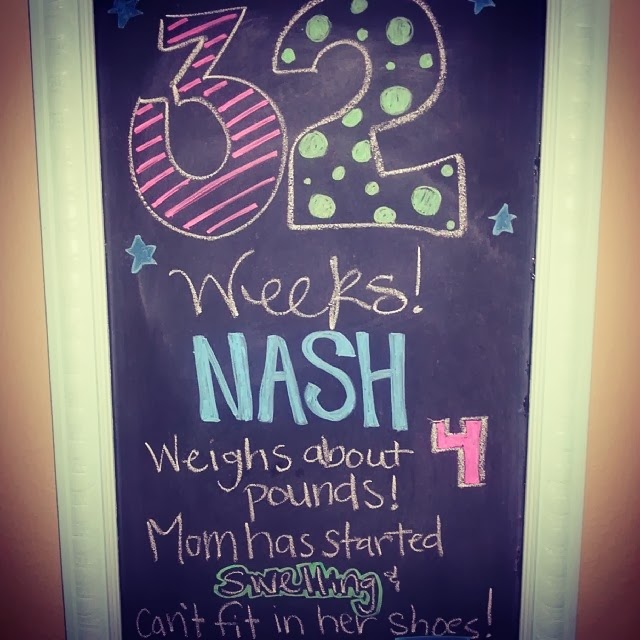 32
Weeks!
NASH
Weighs about 4
pounds!
Mom has started
swelling &
can't fit in her shoes!